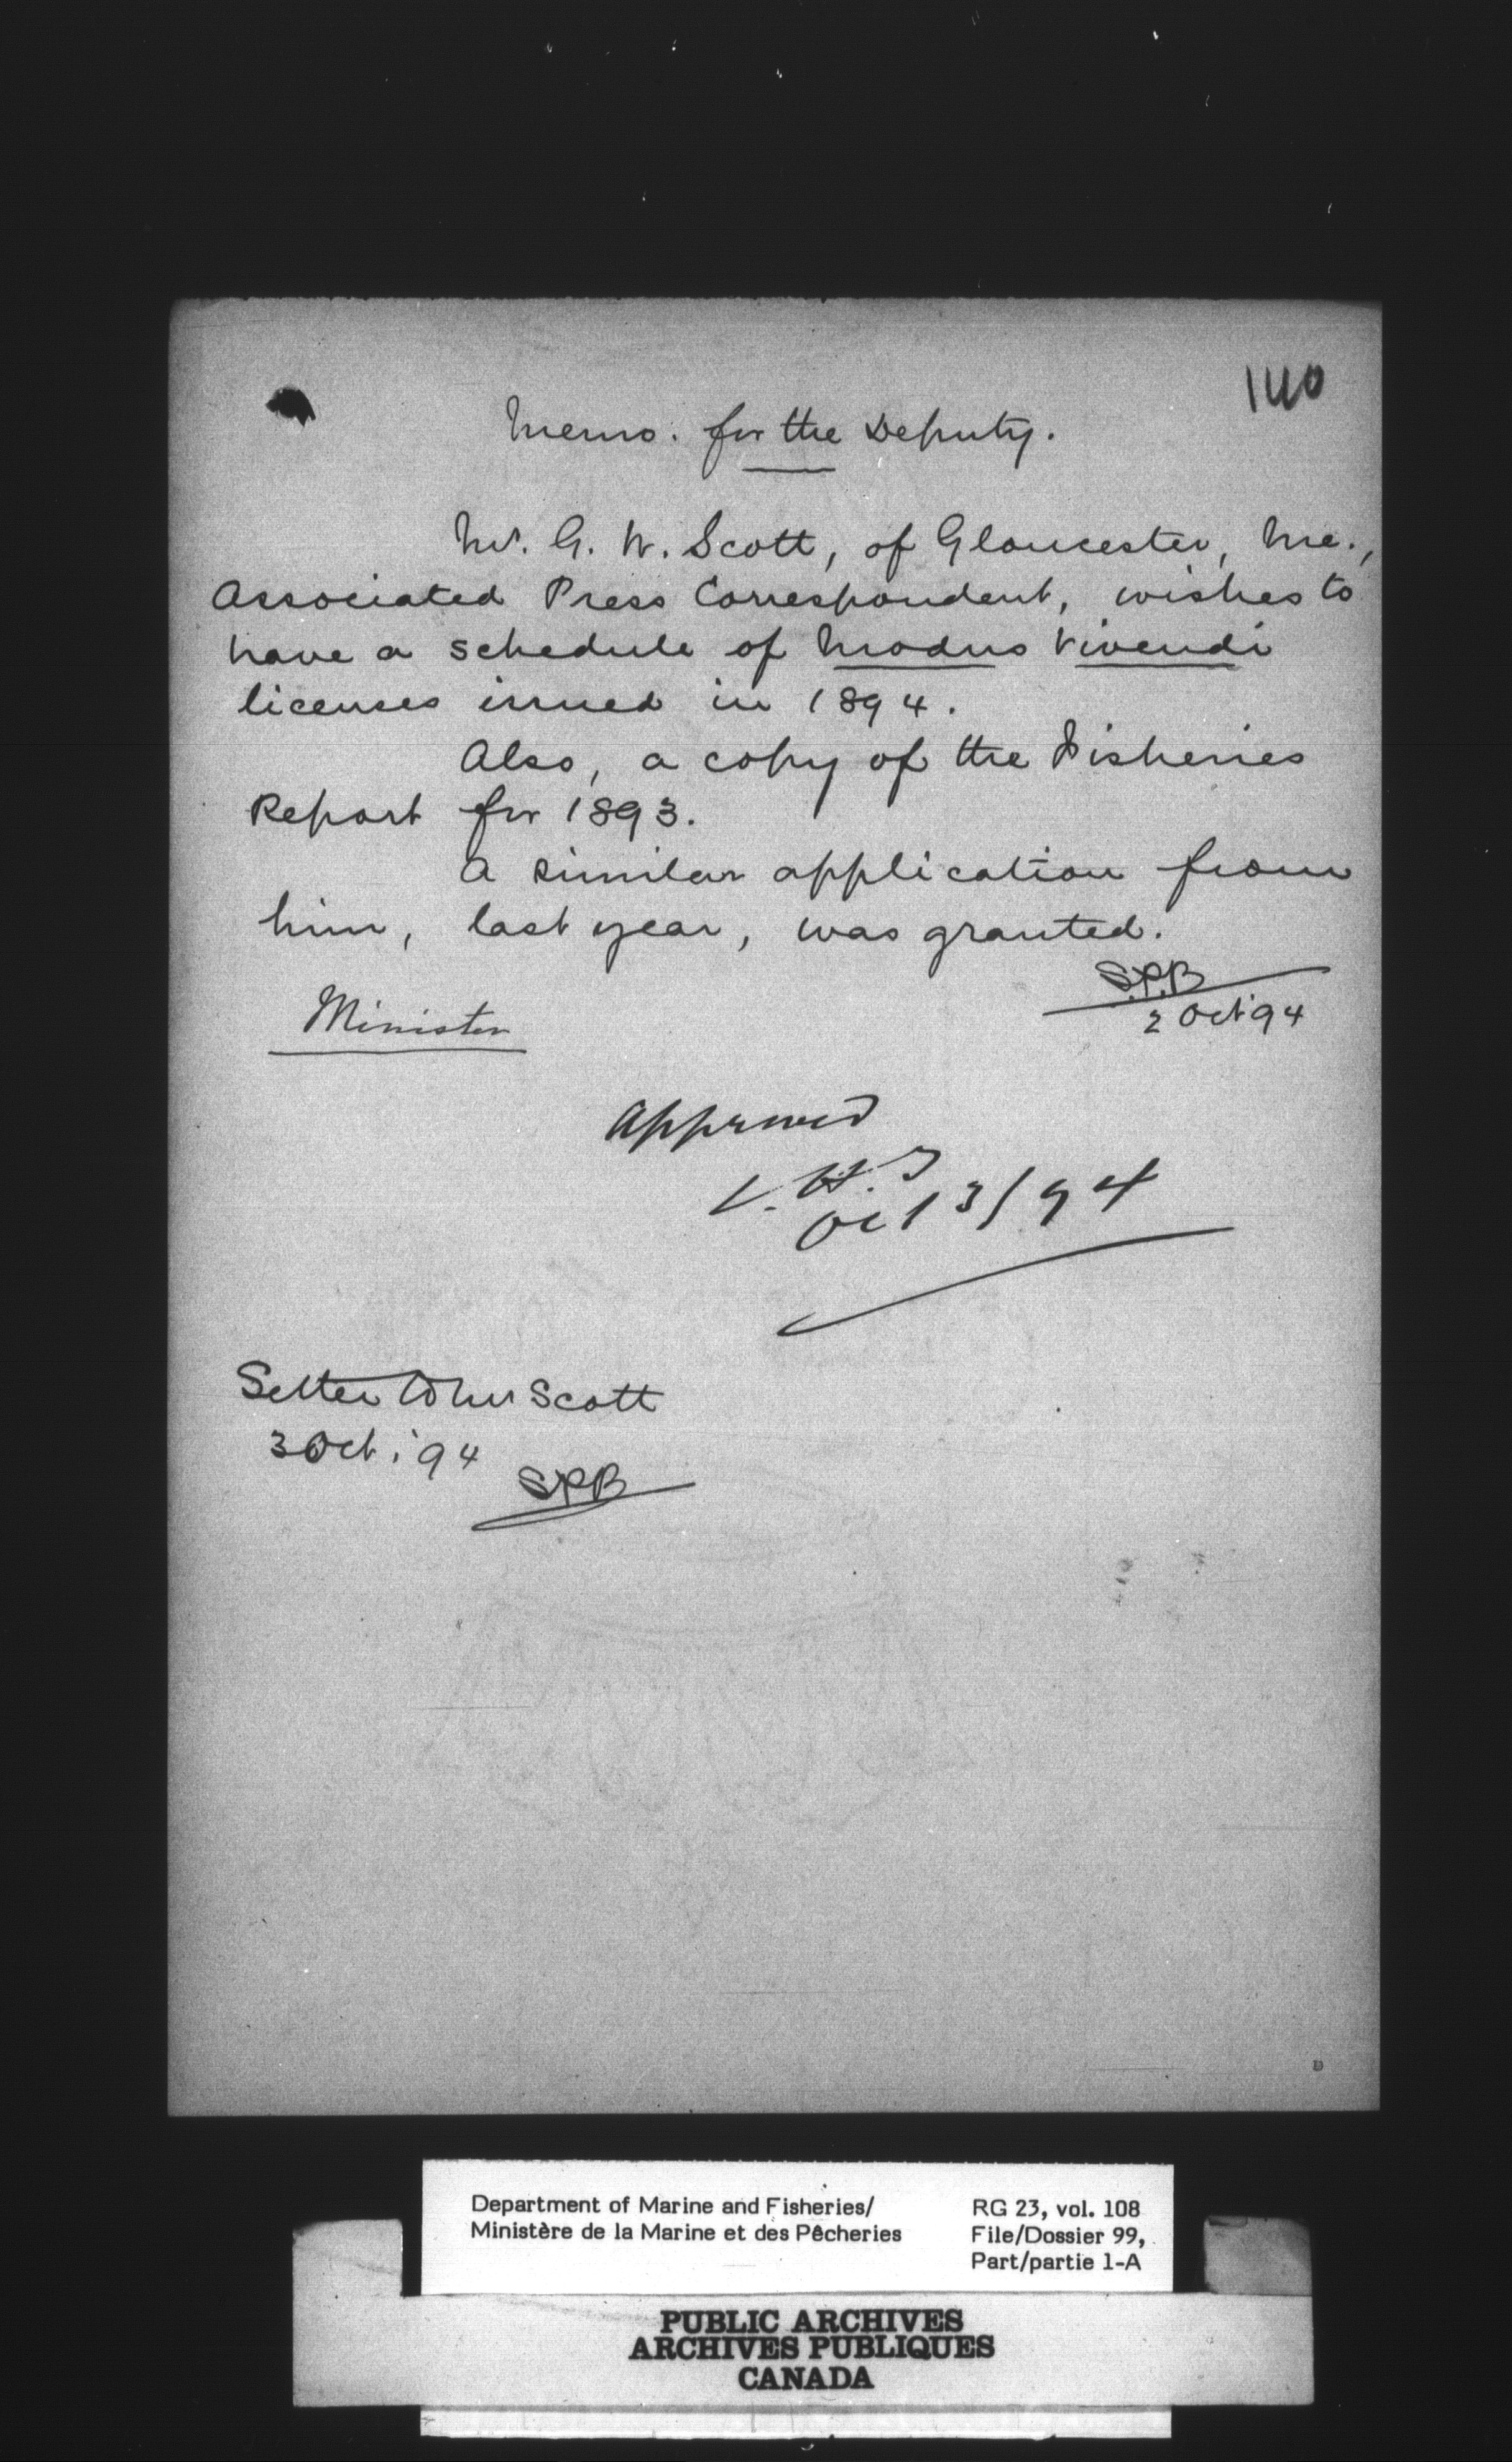 140
Memo. for the Deputy.
Mr. G. W. Scott, of Gloucester, Me.,
Associated Press Correspondent, wishes to
have a schedule of Modus Vivendi
licenses issued in 1894.
Also, a copy of the Fisheries
Report for 1893.
A similar application from
him, last year, was granted.
S.P.B
2 Oct '94
Minister
Approved
C. H. T
Oct 3/94
Letter to Mr Scott
3 Oct. '94
SPB
Department of Marine and Fisheries/
Ministère de la Marine et des Pêcheries
RG 23, vol. 108
File/Dossier 99,
Part/partie 1-A
PUBLIC ARCHIVES
ARCHIVES PUBLIQUES
CANADA